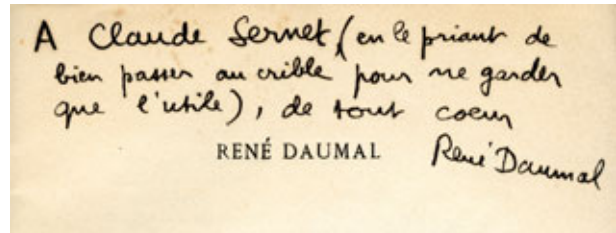 A Claude Sernet, (en le priant de
bien passer au crible pour ne garder
que l'utile), de tout coeur
RENÉ DAUMAL
René Daumal